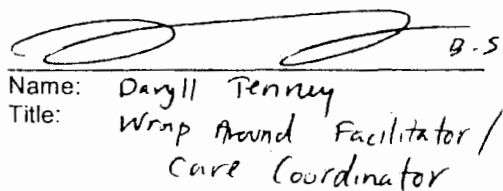 B.S
Name: Daryll Tenney
Title: Wrap Around Facilitator /
Care Coordinator